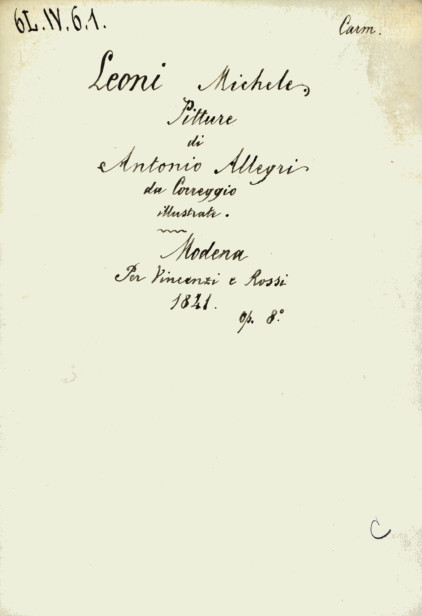 6L.IV.6.1.
Carm.
Leoni Michele
Pitture
di
Antonio Allegri
da Correggio
illustrate.
Modena
Per Vincenzi e Rossi
1841.
op. 8°
C